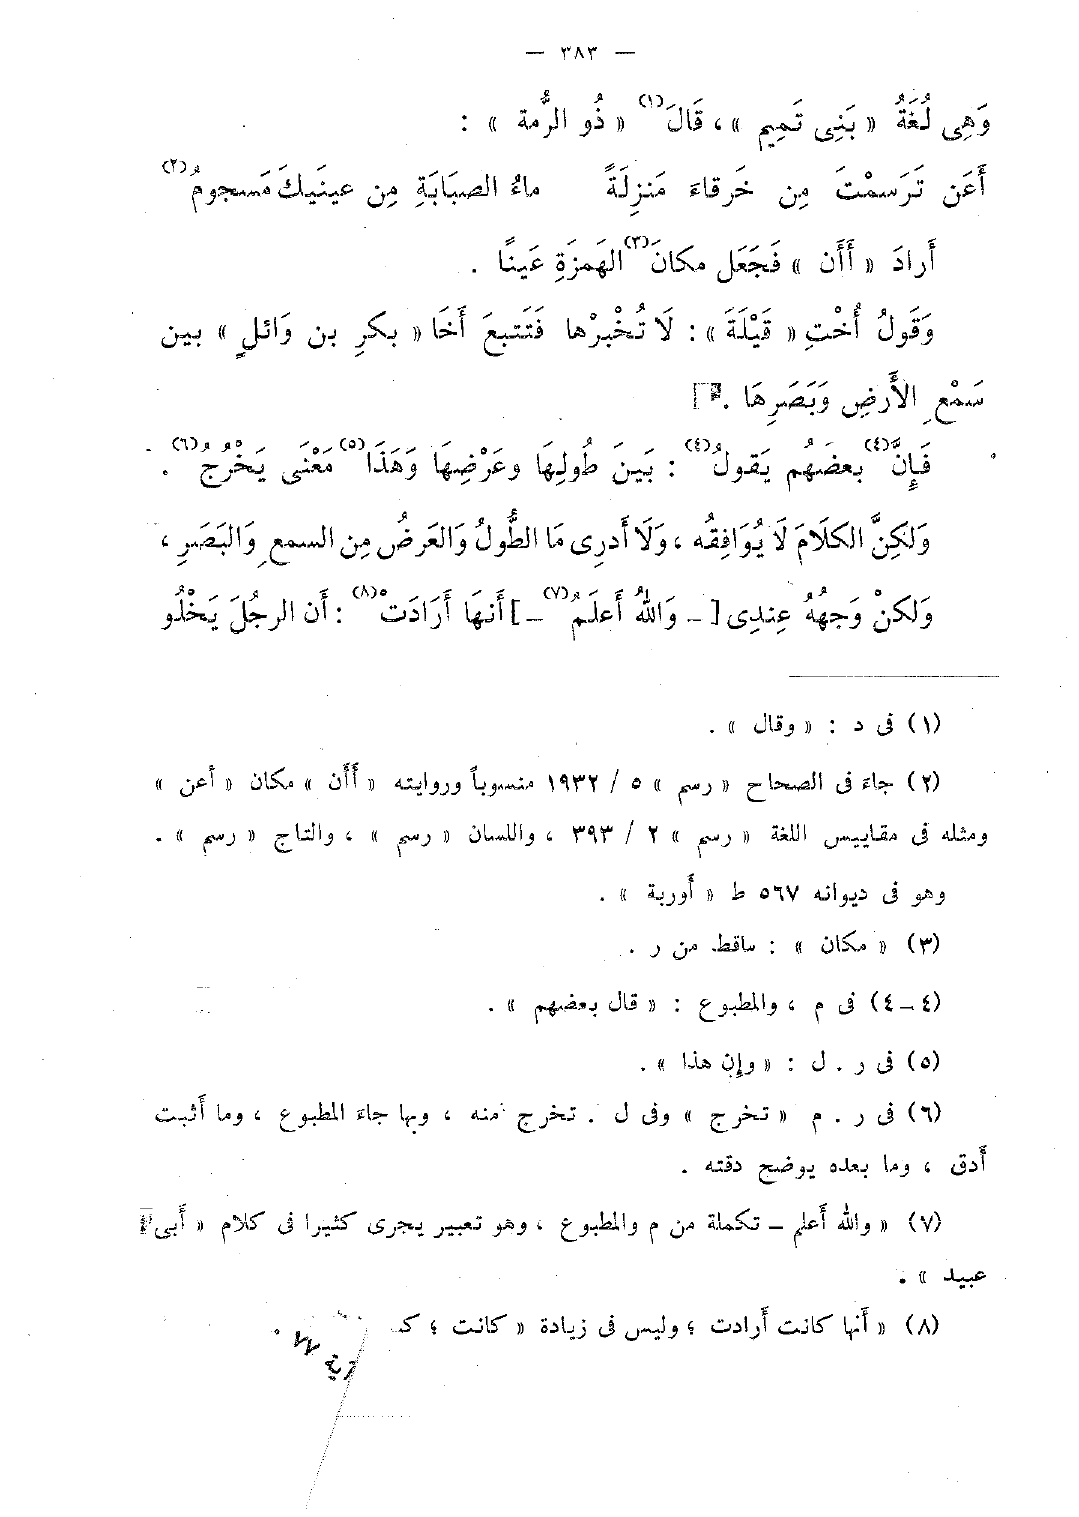 — ٣٨٣ —
وَهِى لُغَةُ « بَنِى تَمِيم » ، قَالَ(١) « ذُو الرُّمة » :
أَعَن تَرَسمْتَ مِن خَرقاءَ مَنزِلَةً ماءُ الصبَابَةِ مِن عينَيكَ مَسجومُ(٢)
أَرادَ « أَأَن » فَجَعَل مكانَ(٣) الهَمزَةِ عَينًا .
وَقَولُ أُخْتِ « قَيْلَةَ » : لَا تُخْبرْها فَتَتبعَ أَخَا « بكرِ بن وَائلٍ » بين
سَمْعِ الأَرضِ وَبَصَرِهَا .]
فَإِنَّ(٤) بعضَهُم يَقولُ(٤) : بَينَ طُولِهَا وعَرْضِهَا وَهَذَا(٥) مَعْنَى يَخْرُجُ(٦) .
وَلكِنَّ الكلَامَ لَا يُوَافِقُه ، وَلَا أَدرِى مَا الطُّولُ وَالعَرضُ مِن السمعِ وَالبَصَرِ ،
وَلكنْ وَجهُهُ عِندِى [ – وَاللهُ أَعلَمُ(٧) – ] أَنهَا أَرَادَتْ(٨) : أَن الرجُلَ يَخْلُو
(١) فى د : « وقال » .
(٢) جاءَ فى الصحاح « رسم » ٥ / ١٩٣٢ منسوباً وروايته « أَأَن » مكان « أعن »
ومثله فى مقاييس اللغة « رسم » ٢ / ٣٩٣ ، واللسان « رسم » ، والتاج « رسم » .
وهو فى ديوانه ٥٦٧ ط « أوربة » .
(٣) « مكان » : ساقط من ر .
(٤–٤) فى م ، والمطبوع : « قال بعضهم » .
(٥) فى ر . ل : « وإن هذا » .
(٦) فى ر . م « تخرج » وفى ل . تخرج منه ، وبها جاءَ المطبوع ، وما أَثبت
أَدق ، وما بعده يوضح دقته .
(٧) « والله أَعلم – تكملة من م والمطبوع ، وهو تعبير يجرى كثيرا فى كلام « أَبى
عبيد » .
(٨) « أَنها كانت أَرادت ؛ وليس فى زيادة « كانت ؛